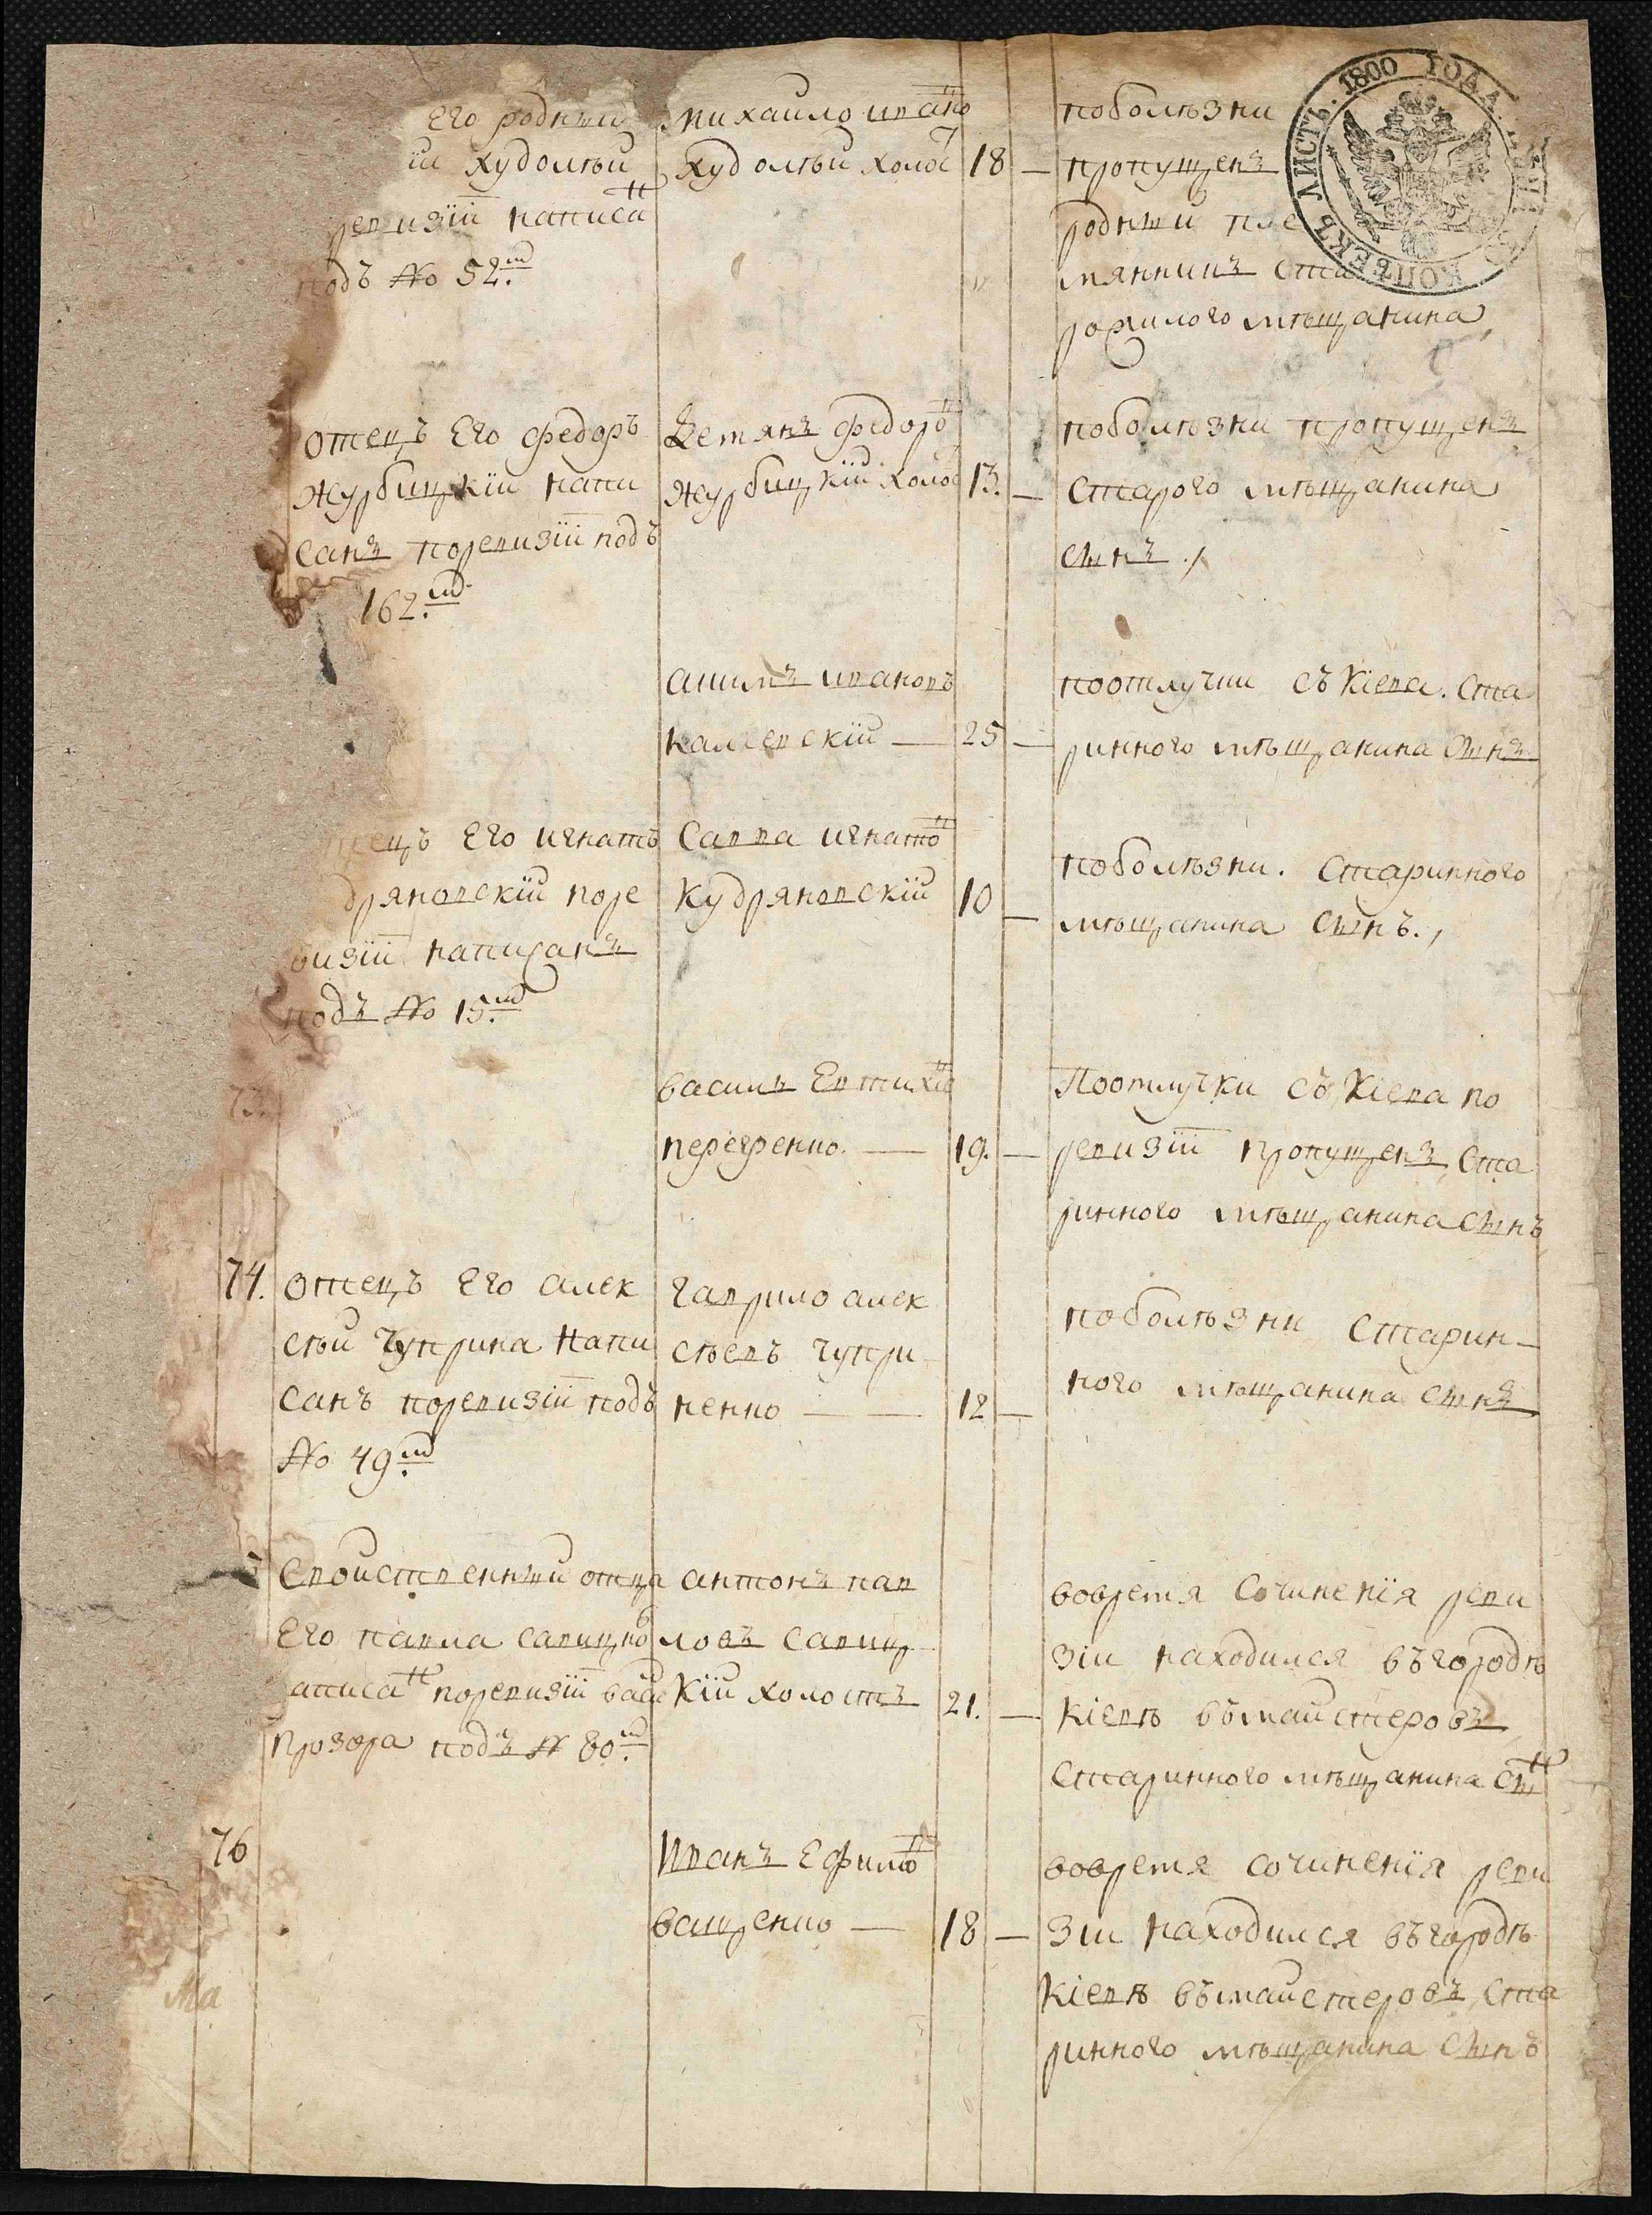 1800 ГОДА.
КОПѢЕКЪ ЛИСТЪ.
Его родный
Худолѣй
ревизіи написан
подъ No 52м.
михаило ивано
Худолѣй холос
18 —
поболѣзни
пропущенъ
родныи пле
мянникъ ста
рожилого мѣщанина
отецъ Его Федоръ
Журбицкіи напи
санъ поревизіи подъ
162м.
Демянъ Федоро
Журбицкіи холос
13. —
поболѣзни пропущенъ
старого мѣщанина
сынъ
ивановъ
25 —
поотлучки съ Кіева. Ста
ринного мѣщанина сынъ
Его игнатъ
дряновскіи поре
визіи написанъ
подъ No 15м.
Савва игнато
Кудряновскіи
10 —
поболѣзни. Старинного
мѣщанина сынъ.
73.
василь Евтихіе
19. —
Поотлучки съ Кіева по
ревизіи пропущенъ, Ста
ринного мѣщанина сынъ
74.
отецъ Его алек
сѣй Чуприна напи
санъ поревизіи подъ
No 49м.
гаврило алек
сѣевъ чупри
ненко —
12 —
поболѣзни старин—
ного мѣщанина сынъ
Свойственныи отца
Его павла савицко
аписан поревизіи
прозора подъ N 80м.
антонъ пав
ловъ савиц
кіи холостъ
21. —
вовремя сочиненія реви
зіи находился въгородѣ
Кіевѣ вѣмайстеровъ
старинного мѣщанина сын
76
Иванъ Ефимо
ващенко —
18 —
вовремя сочиненія реви
зіи находился въгородѣ
Кіевѣ вѣмайстеровъ, Ста
ринного мѣщанина сынъ